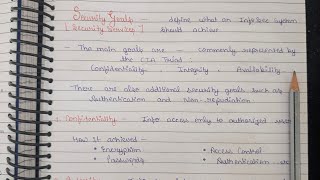 Security Goals - define what an Info sec system
[Security Services] should achieve
- The main goals are - commonly represented by
the CIA Triad:
Confidentiality, Integrity, Availability.
There are also additional security goals such as
Authentication and Non-repudiation
Confidentiality - Info access only to authorized users
How it achieved -
• Encryption • Access Control
• Passwords • Authentication